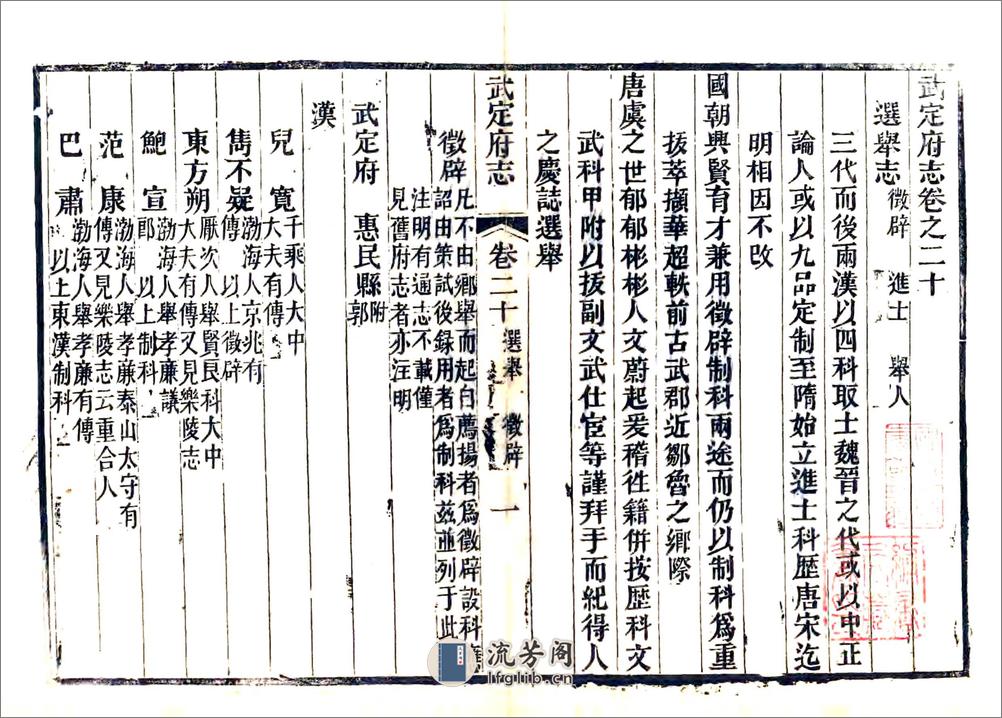 武定府志卷之二十
選舉志 徵辟 進士 舉人
三代而後兩漢以四科取士魏晉之代或以中正
論人或以九品定制至隋始立進士科歷唐宋迄
明相因不改
國朝興賢育才兼用徵辟制科兩途而仍以制科爲重
拔萃擷華超軼前古武郡近鄒魯之鄉際
唐虞之世郁郁彬彬人文蔚起爰稽徃籍併按歷科文
武科甲附以拔副文武仕宦等謹拜手而紀得人
之慶誌選舉
武定府志 卷二十 選舉 徵辟 一
徵辟
凡不由鄉舉而起自薦揚者爲徵辟設科
詔由策試後録用者爲制科兹並列于此
注明有通志不載僅
見舊府志者亦注明
武定府 惠民縣附郭
漢
兒寬
千乘人大中
大夫有傳
雋不疑
渤海人京兆有
傳 以上徵辟
東方朔
厭次人舉賢良科大中
大夫有傳又見樂陵志
鮑宣
渤海人舉孝廉議
郎 以上制科
范康
渤海人舉孝廉泰山太守有
傳又見樂陵志云重合人
巴肅
渤海人舉孝廉有傳
以上東漢制科
流芳阁
lfglib.cn